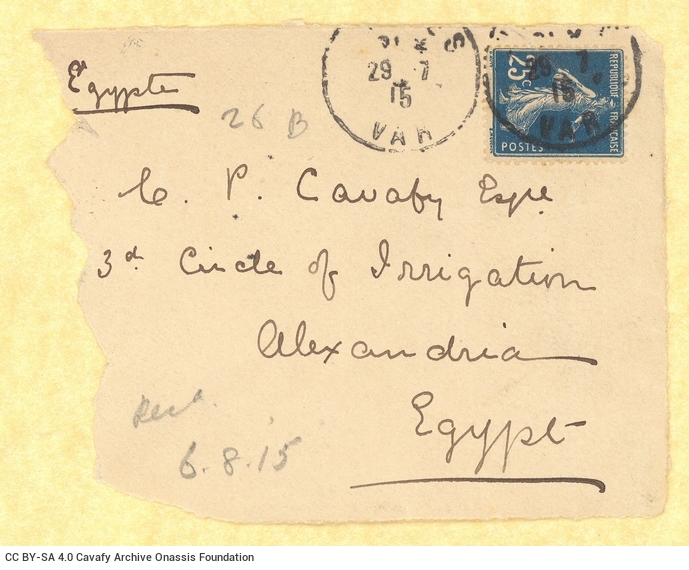 Egypte
29 7
15
VAR
25c
REPUBLIQUE FRANÇAISE
POSTES
29 7
15
VAR
26 B
C. P. Cavafy Esqre
3d Circle of Irrigation
Alexandria
Egypt
Recd.
6.8.15
CC BY-SA 4.0 Cavafy Archive Onassis Foundation